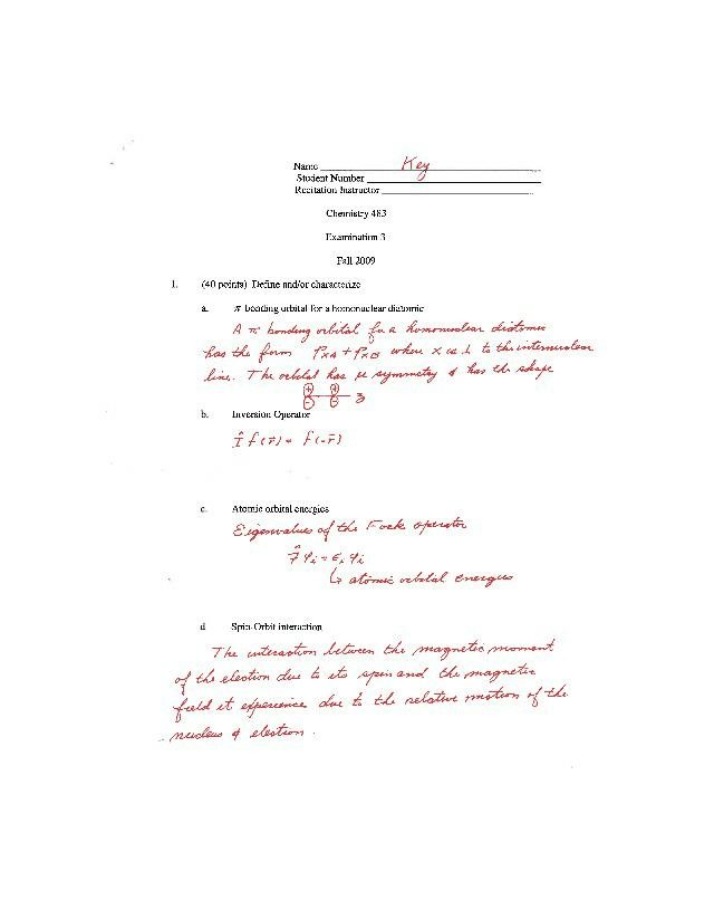 Name Key
Student Number
Recitation Instructor
Chemistry 483
Examination 3
Fall 2009
1. (40 points) Define and/or characterize
a. π bonding orbital for a homonuclear diatomic
A π bonding orbital for a homonuclear diatomic
has the form PxA + PxB where x is ⊥ to the internuclear
line. The orbital has πu symmetry & has the shape
+ + - - z
b. Inversion Operator
Î f(r̄) = f(-r̄)
c. Atomic orbital energies
Eigenvalues of the Fock operator
F̂ φi = εi φi
↳ atomic orbital energies
d. Spin-Orbit interaction
The interaction between the magnetic moment
of the electron due to its spin and the magnetic
field it experience due to the relative motion of the
nucleus & electron.